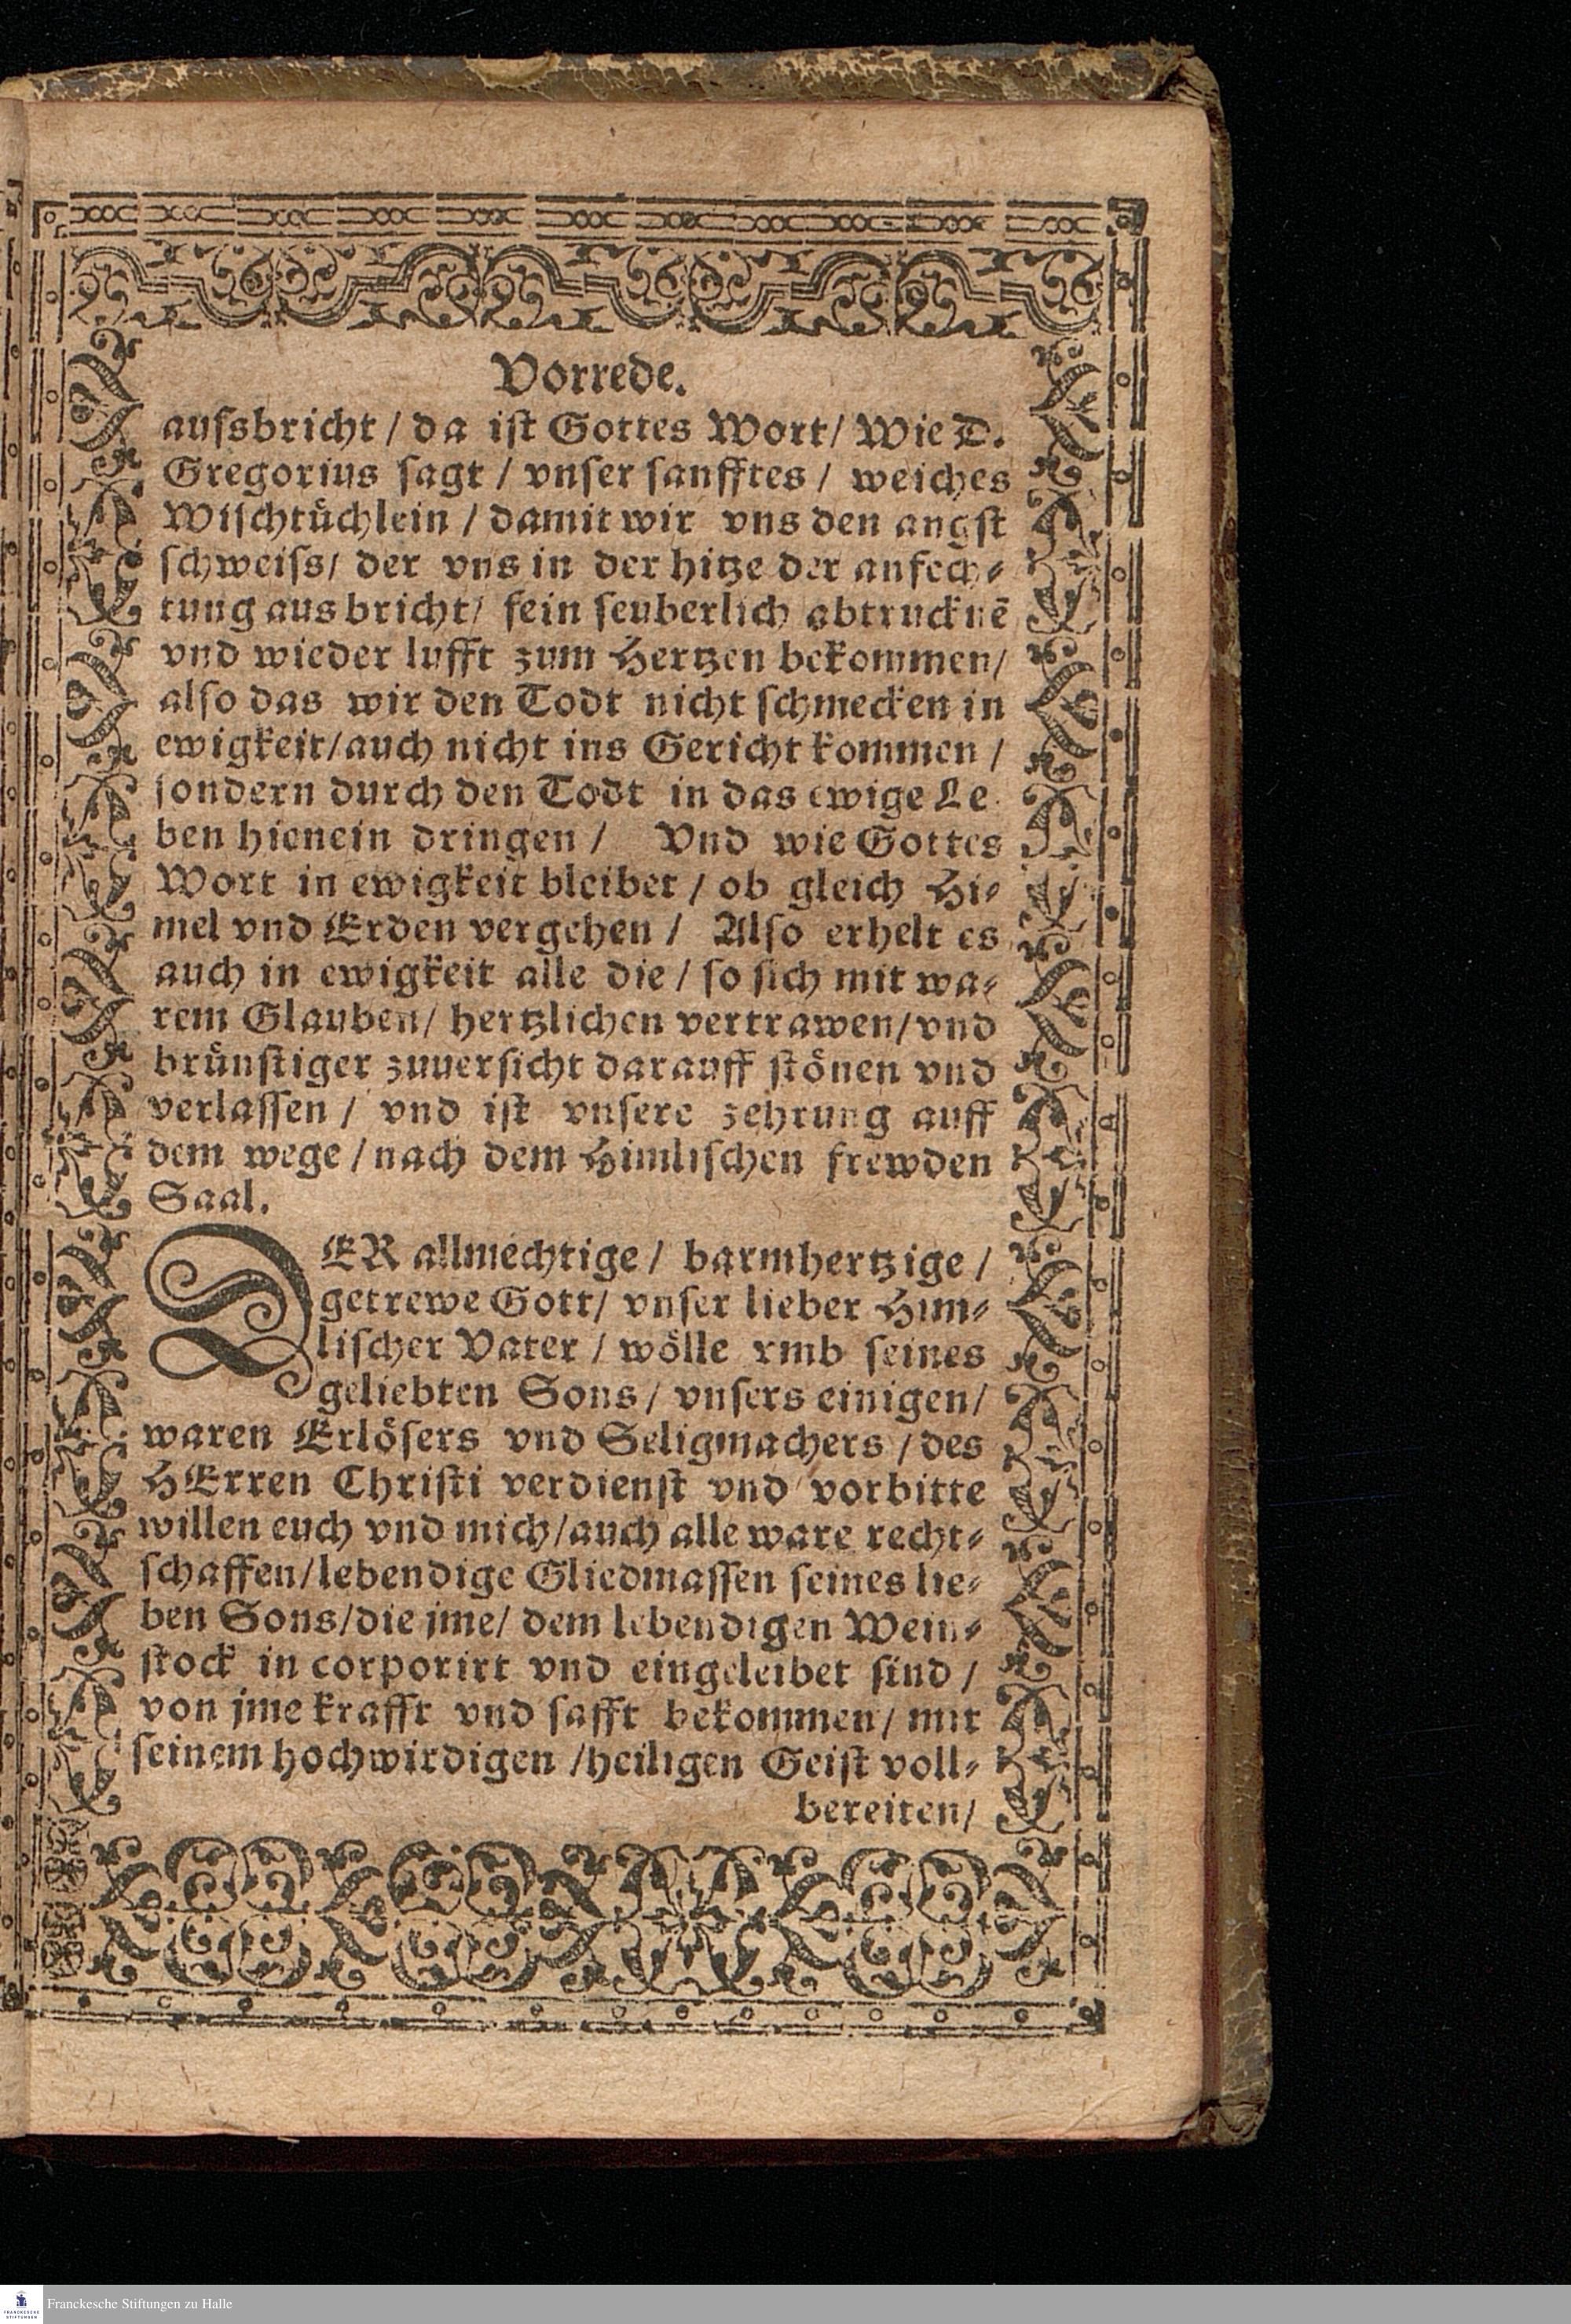 Vorrede.
ausſbricht / da iſt Gottes Wort / Wie D.
Gregorius ſagt / vnſer ſanfftes / weiches
Wiſchtuͤchlein / damit wir vns den angſt
ſchweiſs / der vns in der hitze der anfech⸗
tung ausbricht / fein ſeuberlich abtrucknē
vnd wieder lufft zum Hertzen bekommen /
alſo das wir den Todt nicht ſchmecken in
ewigkeit / auch nicht ins Gericht kommen /
ſondern durch den Todt in das ewige Le
ben hienein dringen / Vnd wie Gottes
Wort in ewigkeit bleibet / ob gleich Hi⸗
mel vnd Erden vergehen / Alſo erhelt es
auch in ewigkeit alle die / ſo ſich mit wa⸗
rem Glauben / hertzlichen vertrawen / vnd
bruͤnſtiger zuuerſicht darauff ſtoͤnen vnd
verlaſſen / vnd iſt vnſere zehrung auff
dem wege / nach dem Himliſchen frewden
Saal.
DER allmechtige / barmhertzige /
getrewe Gott / vnſer lieber Him⸗
liſcher Vater / woͤlle vmb ſeines
geliebten Sons / vnſers einigen /
waren Erloͤſers vnd Seligmachers / des
HErren Chriſti verdienſt vnd vorbitte
willen euch vnd mich / auch alle ware recht⸗
ſchaffen / lebendige Gliedmaſſen ſeines lie⸗
ben Sons / die jme / dem lebendigen Wein⸗
ſtock in corporirt vnd eingeleibet ſind /
von jme krafft vnd ſafft bekommen / mit
ſeinem hochwirdigen / heiligen Geiſt voll⸗
bereiten /
Franckesche Stiftungen zu Halle
FRANCKESCHE
STIFTUNGEN